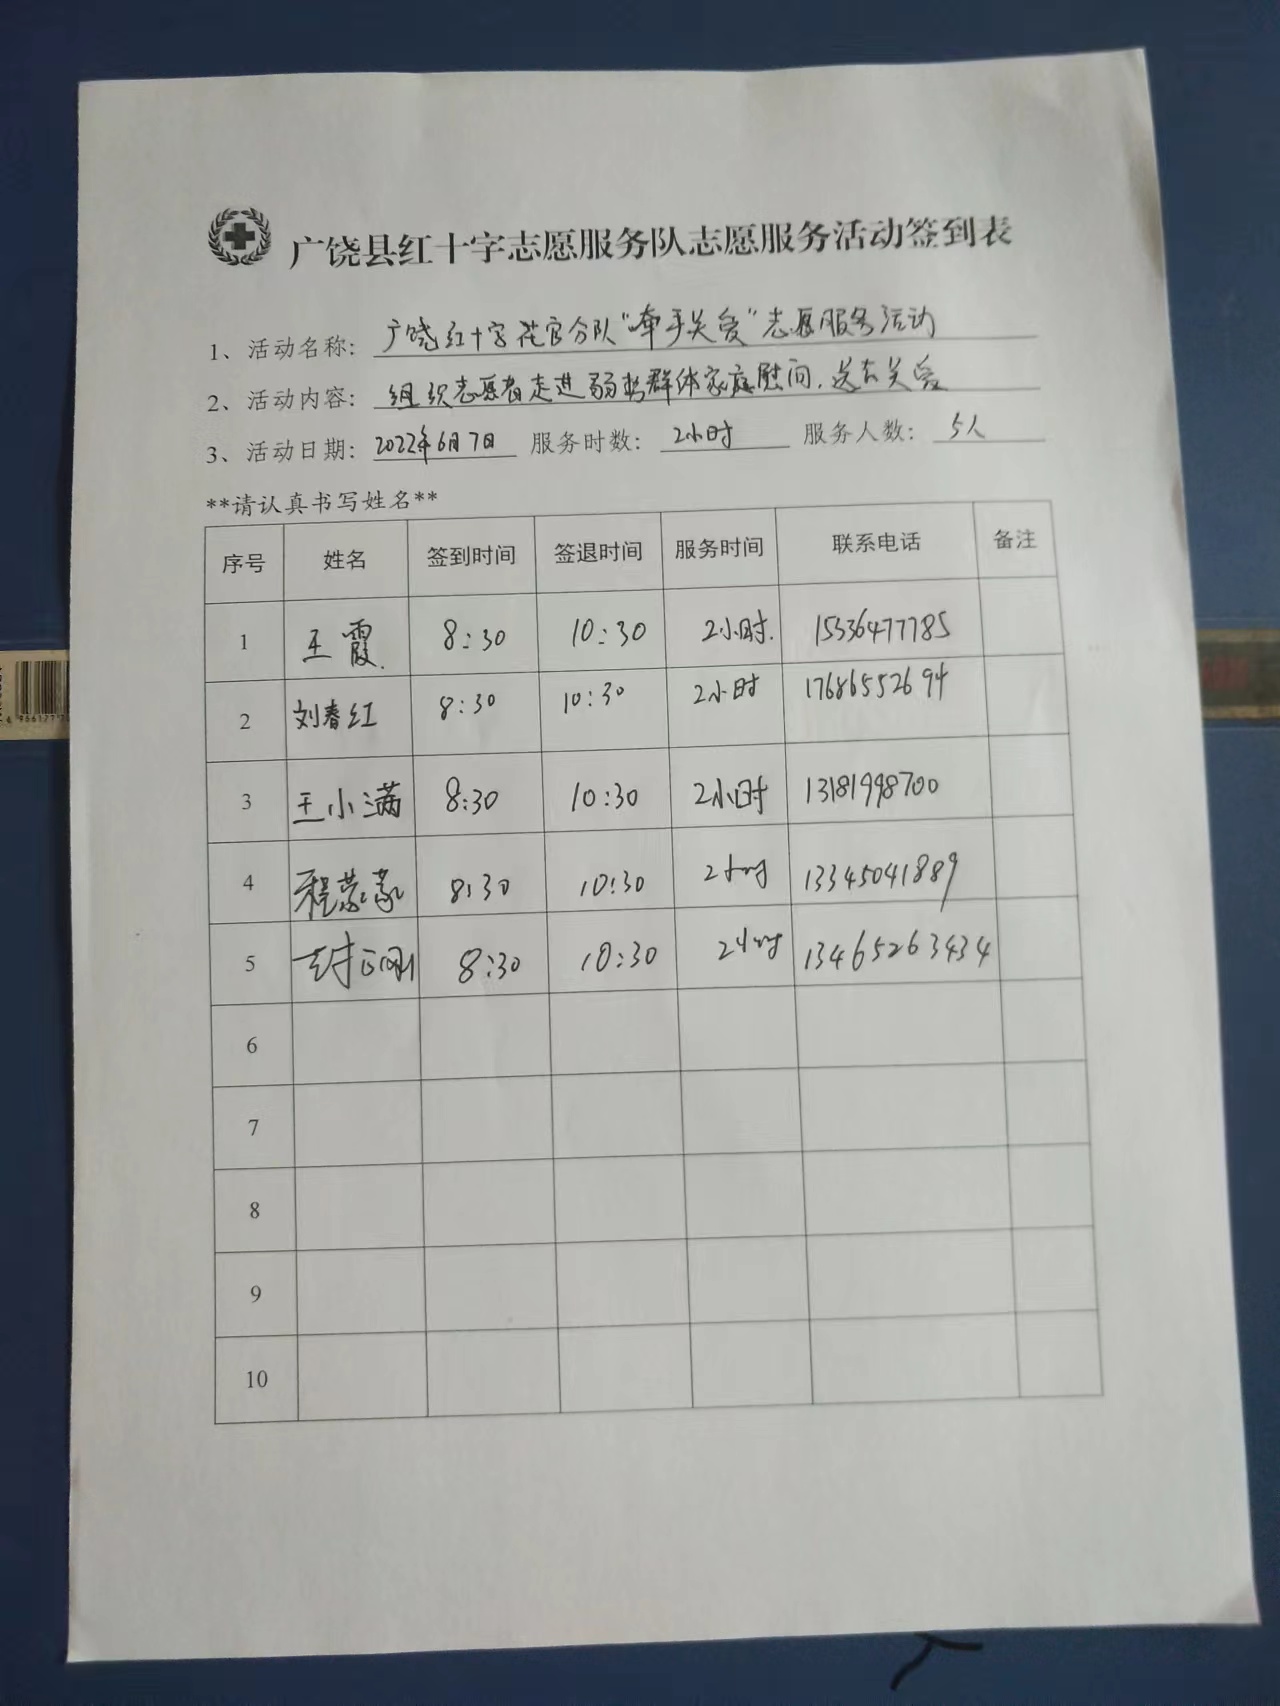 广饶县红十字志愿服务队志愿服务活动签到表
1、活动名称：广饶红十字花官分队“牵手关爱”志愿服务活动
2、活动内容：组织志愿者走进弱势群体家庭慰问，送去关爱
3、活动日期：2022年6月7日 服务时数：2小时 服务人数：5人
**请认真书写姓名**
序号 姓名 签到时间 签退时间 服务时间 联系电话 备注
1 王霞 8:30 10:30 2小时 15336477785
2 刘春红 8:30 10:30 2小时 17686552694
3 王小满 8:30 10:30 2小时 13181998700
4 程蒙蒙 8:30 10:30 2小时 13345041889
5 8:30 10:30 2小时 13465263434
6
7
8
9
10